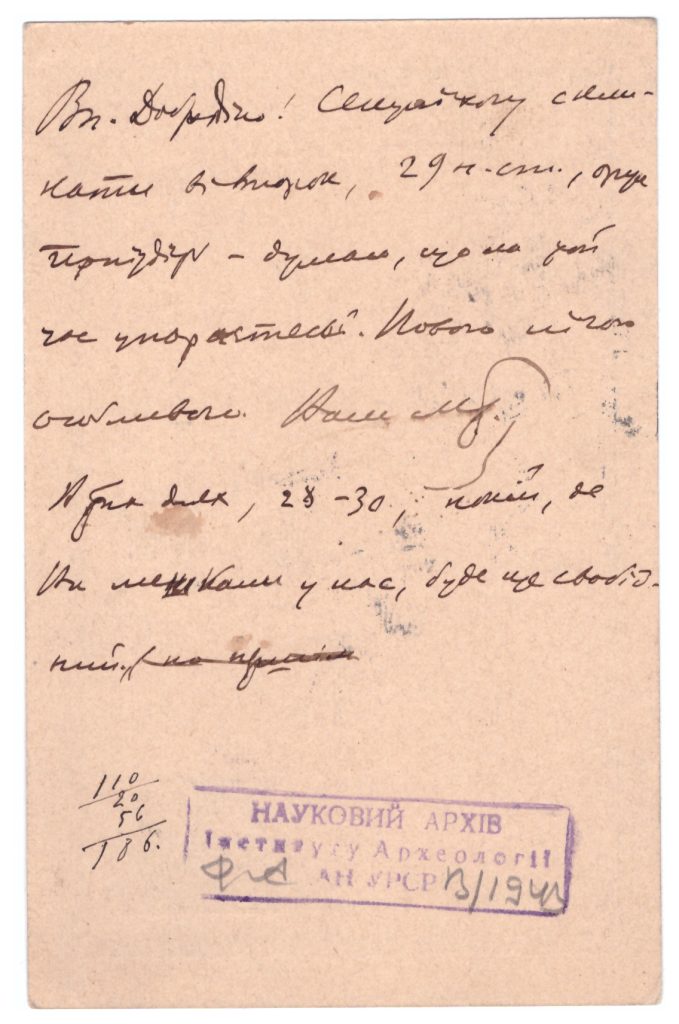 Вп. Добродію! Секцій хочу скли-
кати в второк, 29 н. ст., 
 – думаю, що на той
час упораєтесь. Нового нічого
особливого. Ваш М Г
А як для, 28–30, покій, де
Ви мешкали у нас, буде ще свобід-
ний.
110
20
56
186.
НАУКОВИЙ АРХІВ
Інституту Археології
АН УРСР
В/1943